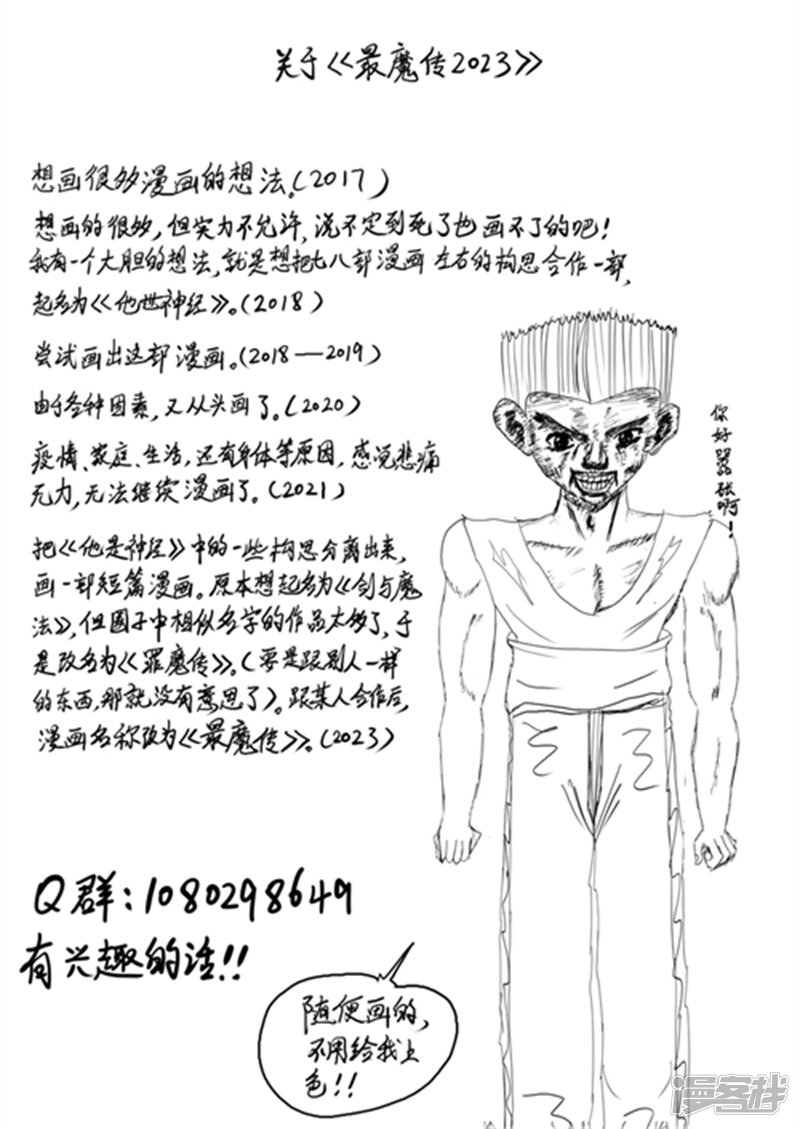 关于《最魔传2023》
想画很多漫画的想法。(2017)
想画的很多，但实力不允许，说不定到死了也画不了的吧！
我有一个大胆的想法，就是想把七八部漫画左右的构思合作一部，
起名为《他世神经》。(2018)
尝试画出这部漫画。(2018—2019)
由于各种因素，又从头画了。(2020)
疫情、家庭、生活，还有身体等原因，感觉悲痛
无力，无法继续漫画了。(2021)
把《他是神经》中的一些构思分离出来，
画一部短篇漫画。原本想起名为《剑与魔
法》，但圈子中相似名字的作品太多了，于
是改名为《罪魔传》。（要是跟别人一样
的东西，那就没有意思了）。跟某人合作后，
漫画名称改为《最魔传》。(2023)
你好嚣张啊！
Q群：1080298649
有兴趣的话!!
随便画的，
不用给我上
色!!
漫客栈